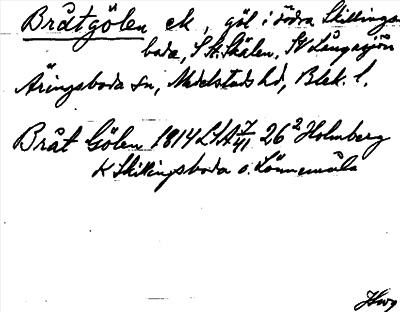 Bråtgölen ek, göl i södra Skillings-
boda, S St. Skälen, SV Långasjön
Åryngsboda sn, Medelstads hd, Blek. l.
Bråt Gölen 1814 LSA 7/41 26² Holmberg
K Skillingsboda o. Lönnemåla